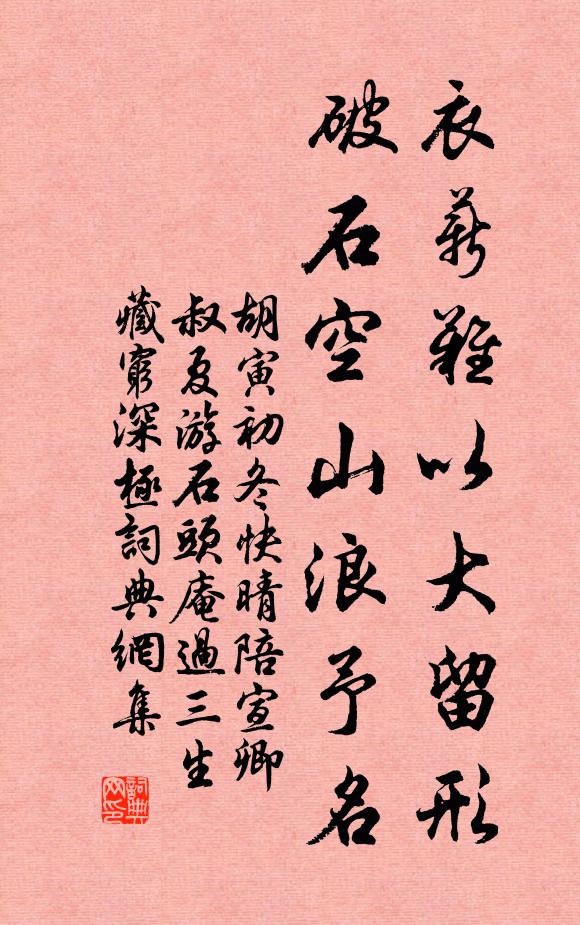 衣薪難以大留形
破石空山浪予名
胡寅初冬快晴陪宣卿
叔夏游石頭庵過三生
藏窮深極詞典網集
詞典
网印